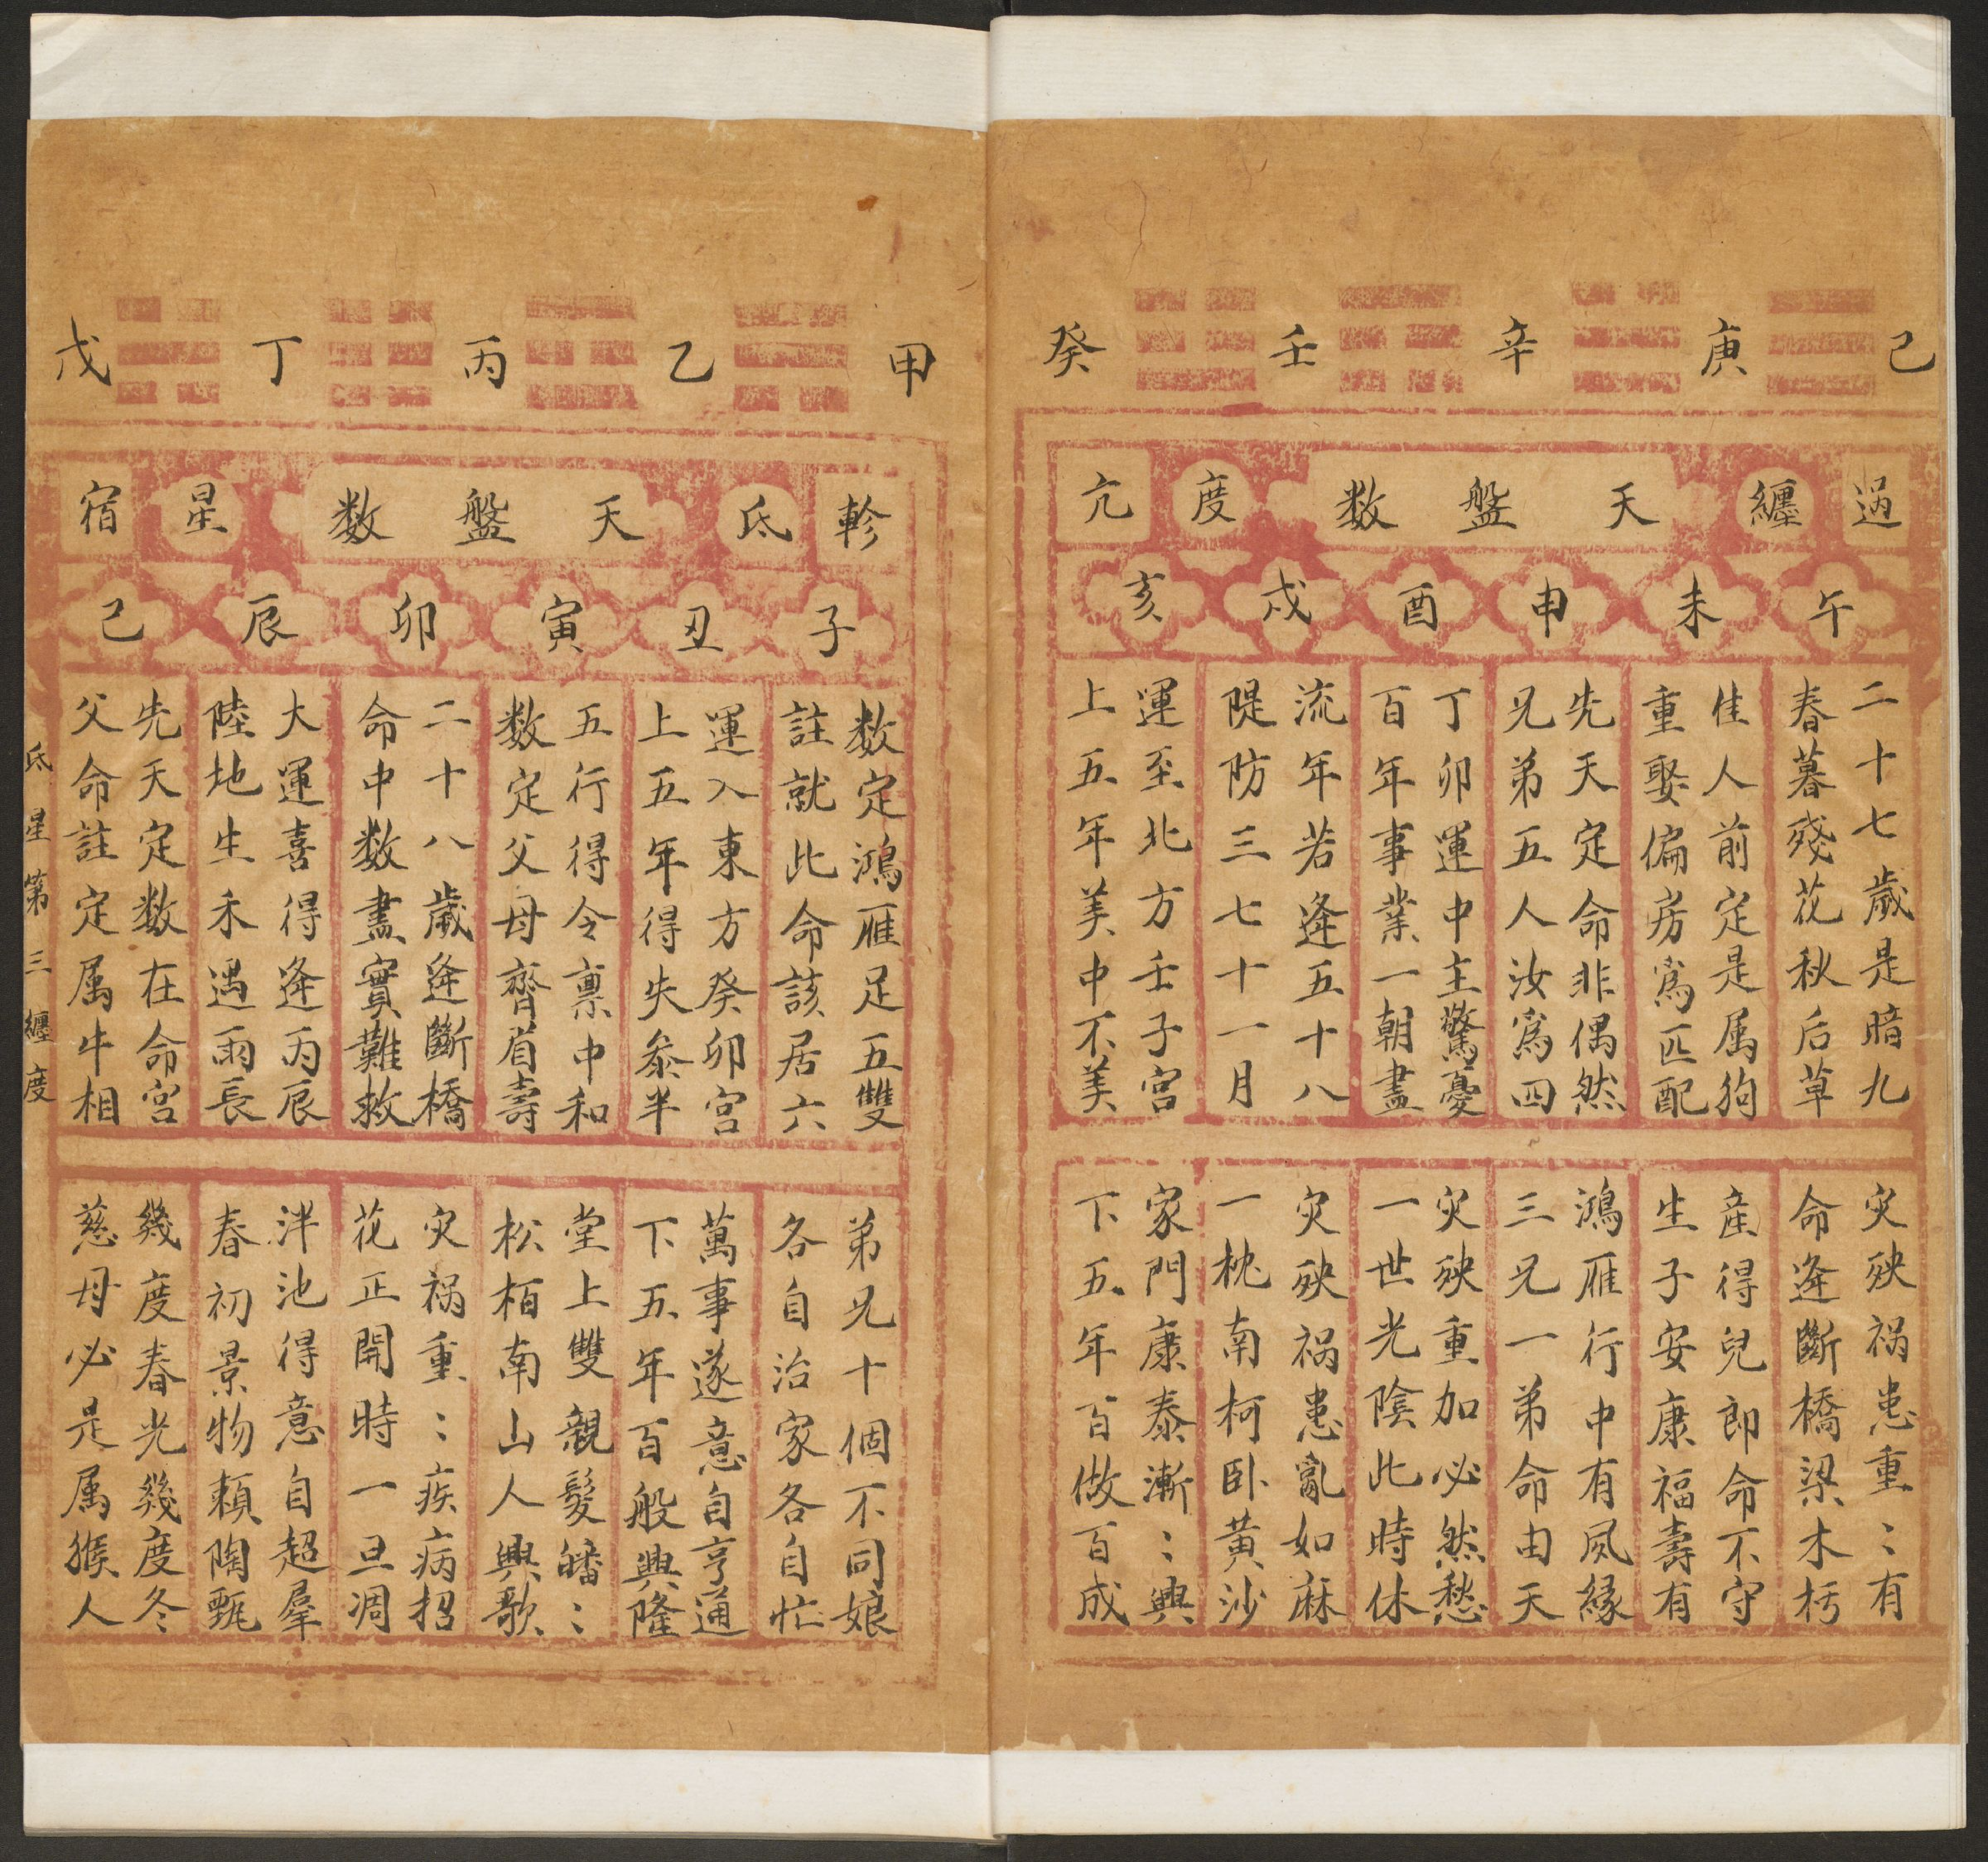 己庚辛壬癸
過纏天盤数度亢
午未申酉戌亥
二十七歲是暗九
春暮殘花秋后草
佳人前定是属狗
重娶偏房為匹配
先天定命非偶然
兄弟五人汝為四
丁卯運中主驚憂
百年事業一朝盡
流年若逢五十八
隄防三七十一月
運至北方壬子宮
上五年美中不美
灾殃禍患重〻有
命逢斷橋梁木朽
産得兒郎命不守
生子安康福壽有
鴻雁行中有夙緣
三兄一弟命由天
灾殃重加必然愁
一世光陰此時休
灾殃禍患亂如麻
一枕南柯卧黄沙
家門康泰漸〻興
下五年百做百成
甲乙丙丁戊
軫氐天盤数星宿
子丑寅卯辰巳
数定鴻雁足五雙
註就此命該居六
運入東方癸卯宮
上五年得失叅半
五行得令禀中和
数定父母齊眉壽
二十八歲逢斷橋
命中数盡實難救
大運喜得逢丙辰
陸地生禾遇雨長
先天定数在命宮
父命註定属牛相
弟兄十個不同娘
各自治家各自忙
萬事遂意自亨通
下五年百般興隆
堂上雙親髮皤〻
松栢南山人興歌
灾禍重〻疾病招
花正開時一旦凋
泮池得意自超羣
春初景物賴陶甄
幾度春光幾度冬
慈母必是属猴人
氐星第三纏度